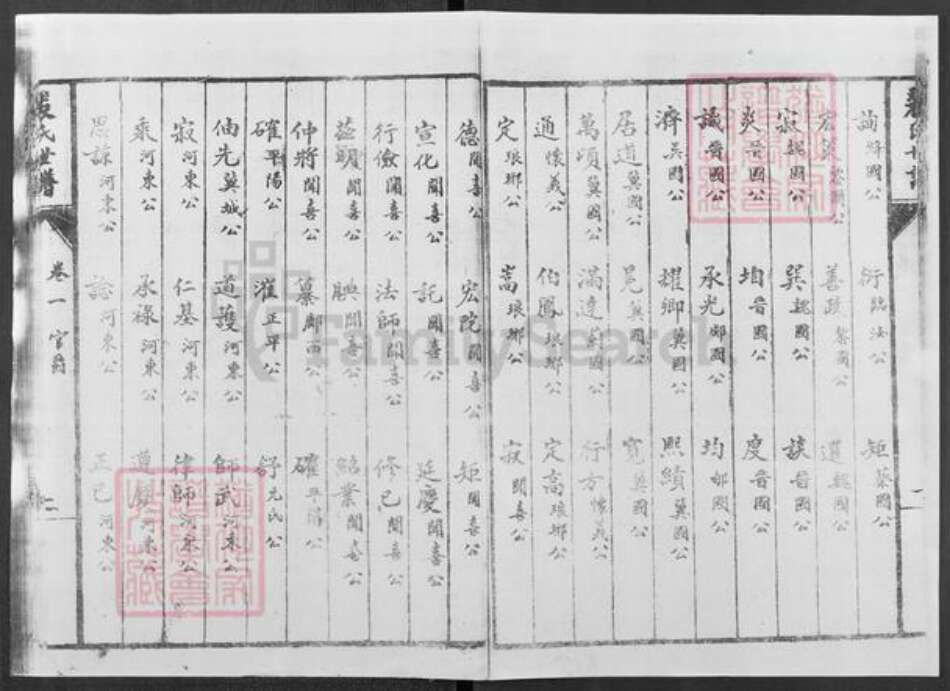 衍臨汝公 矩蔡國公
善政
寂魏國公 巽魏國公 談晉國公
炎晉國公 垍晉國公 度晉國公
識晉國公 承光郇國公 均郇國公
濟吳國公 耀卿冀國公 熙績冀國公
居道冀國公 寬冀國公
萬頃冀國公 滿達冀國公 行方懷義公
通懷義公 伯鳳琅琊公 定高琅琊公
定琅琊公 嵩琅琊公 寂聞喜公
德聞喜公 宏院聞喜公 矩聞喜公
宣化聞喜公 託聞喜公 延慶聞喜公
行儉聞喜公 法師聞喜公 修己聞喜公
聞喜公 聞喜公 紹業聞喜公
仲將聞喜公
確平陽公 漼正平公 舒元氏公
伷先冀城公 道護河東公 師武河東公
寂河東公 仁基河東公 律師河東公
乘河東公 承祿河東公 遵河東公
思諒河東公 諗河東公 正己河東公
裴氏世譜
卷一 官爵
二
FamilySearch